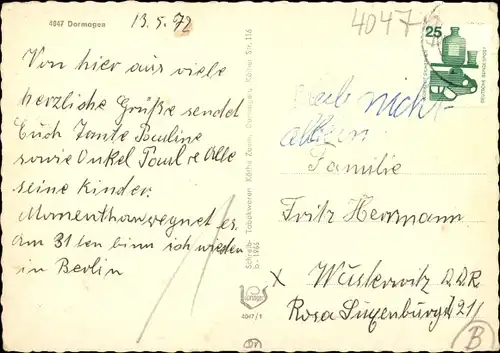 4047 Dormagen
13.5.72
Von hier aus viele
herzliche Grüße sendet
Euch Tante Pauline
sowie Onkel Paul + Alle
seine Kinder.
Momenthan regnet es
am 31ten binn ich wieder
in Berlin
Schreib- Tabakwaren Käthe Dormagen, Kölner Str. 116
b-1966
4047/1
4047
25
DEUTSCHE BUNDESPOST
nicht
Familie
Fritz Herrmann
X Wusterwitz DDR
Rosa Luxenburgst 21
B